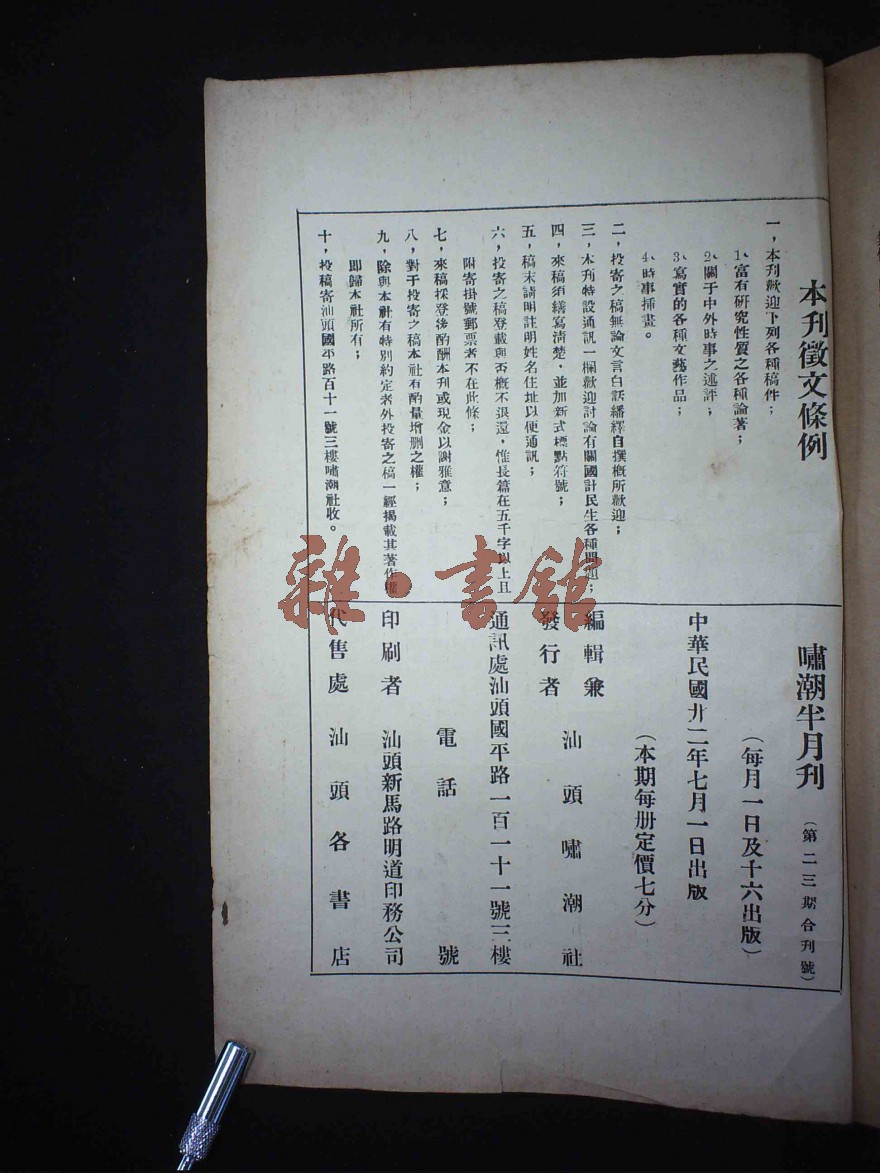 本刋徵文條例
一，本刋歡迎下列各種稿件；
1、富有研究性質之各種論著；
2、關于中外時事之述評；
3、寫實的各種文藝作品；
4、時事插畫。
二，投寄之稿無論文言白話繙繹自撰概所歡迎；
三，本刋特設通訊一欄歡迎討論有關國計民生各種問題；
四，來稿須繕寫淸楚，並加新式標點符號；
五，稿末請明註明姓名住址以便通訊；
六，投寄之稿登載與否概不退還，惟長篇在五千字以上且
附寄掛號郵票者不在此條；
七，來稿採登後酌酬本刋或現金以謝雅意；
八，對于投寄之稿本社有酌量增删之權；
九，除與本社有特別約定者外投寄之稿一經揭載其著作權
即歸本社所有；
十，投稿寄汕頭國平路百十一號三樓嘯潮社收。
嘯潮半月刋（第二三期合刋號）
（每月一日及十六出版）
中華民國廿二年七月一日出版
（本期每册定價七分）
編輯兼
發行者 汕頭嘯潮社
通訊處汕頭國平路一百一十一號三樓
電話 號
印刷者 汕頭新馬路明道印務公司
代售處 汕頭各書店
雜·書館